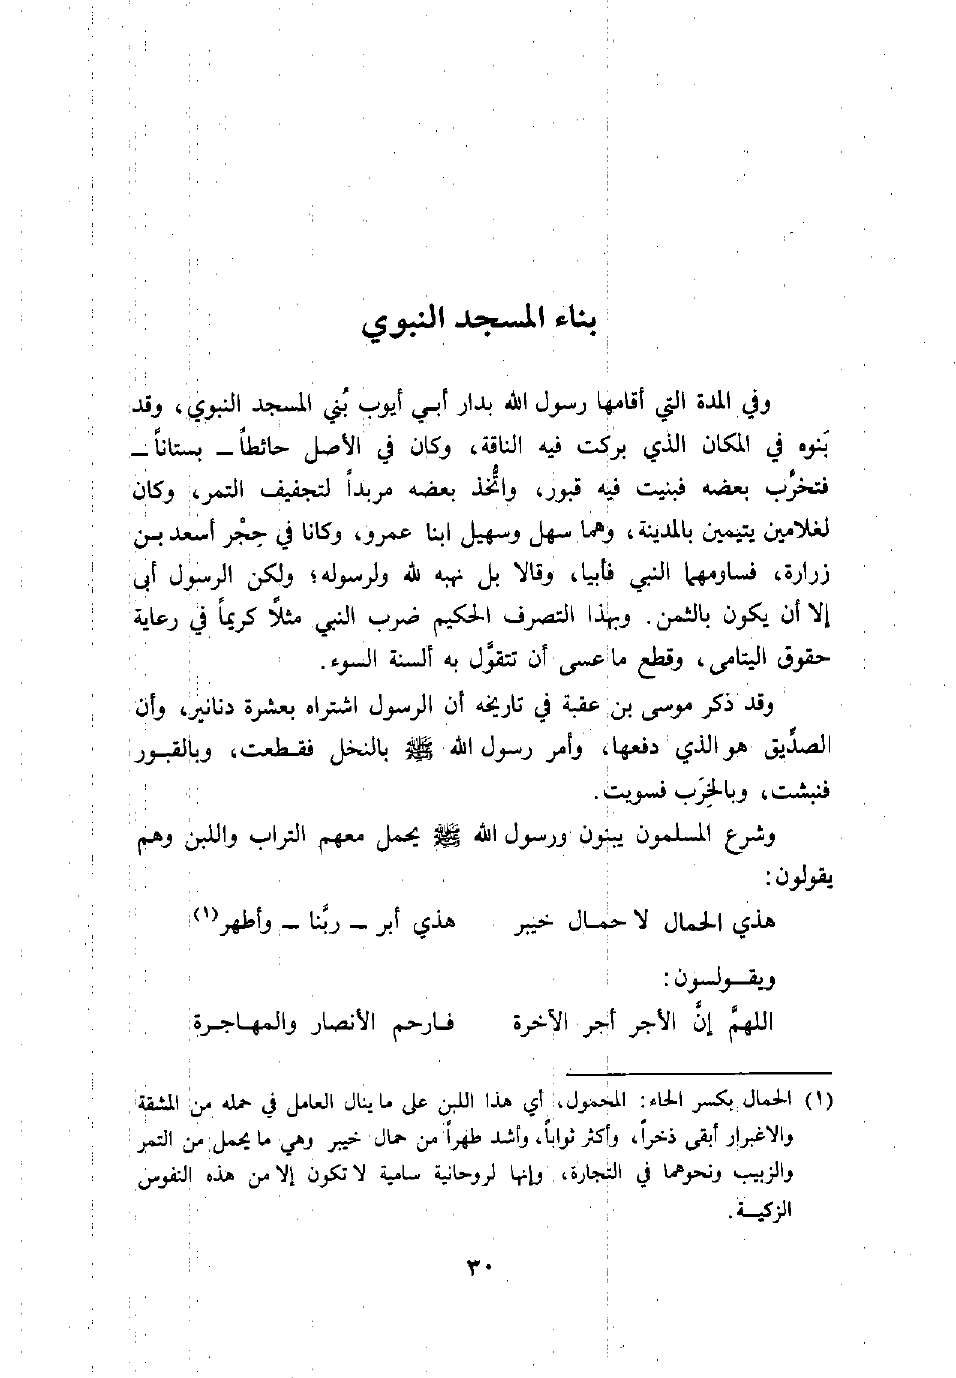 بناء المسجد النبوي
وفي المدة التي أقامها رسول الله بدار أبي أيوب بُني المسجد النبوي، وقد
بَنوه في المكان الذي بركت فيه الناقة، وكان في الأصل حائطاً ـ بستاناً ـ
فتخرَّب بعضه فبنيت فيه قبور، واتُّخذ بعضه مربداً لتجفيف التمر، وكان
لغلامين يتيمين بالمدينة، وهما سهل وسهيل ابنا عمرو، وكانا في حِجْر أسعد بن
زرارة، فساومهما النبي فأبيا، وقالا بل نهبه لله ولرسوله؛ ولكن الرسول أبى
إلا أن يكون بالثمن. وبهذا التصرف الحكيم ضرب النبي مثلاً كريماً في رعاية
حقوق اليتامى، وقطع ما عسى أن تتقوَّل به ألسنة السوء.
وقد ذكر موسى بن عقبة في تاريخه أن الرسول اشتراه بعشرة دنانير، وأن
الصدِّيق هو الذي دفعها، وأمر رسول الله ﷺ بالنخل فقطعت، وبالقبور
فنبشت، وبالخِرَب فسويت.
وشرع المسلمون يبنون ورسول الله ﷺ يحمل معهم التراب واللبن وهم
يقولون:
هذي الحمال لا حمال خيبر هذي أبر ـ ربَّنا ـ وأطهر(١)
ويقولون:
اللهمَّ إنَّ الأجر أجر الآخرة فارحم الأنصار والمهاجرة
(١) الحمال بكسر الحاء: المحمول، أي هذا اللبن على ما ينال العامل في حمله من المشقة
والاغبرار أبقى ذخراً، وأكثر ثواباً، وأشد طهراً من حمال خيبر وهي ما يحمل من التمر
والزبيب ونحوهما في التجارة، وإنها لروحانية سامية لا تكون إلا من هذه النفوس
الزكية.
٣٠